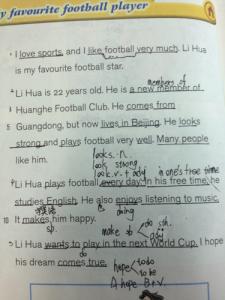 y favourite football player
I love sports, and I like football very much. Li Hua
is my favourite football star.
members of
Li Hua is 22 years old. He is a new member of
3 Huanghe Football Club. He comes from
5 Guangdong, but now lives in Beijing. He looks
strong and plays football very well. Many people
like him.
looks. n.
look strong
look. v. + adj in one's free time
Li Hua plays football every day. In his free time, he
studies English. He also enjoys listening to music.
doing
10 It makes him happy.
sb.
make sb do sth.
adj
Li Hua wants to play in the next World Cup. I hope
do
his dream comes true.
hope to do
to be
A hope B + V.